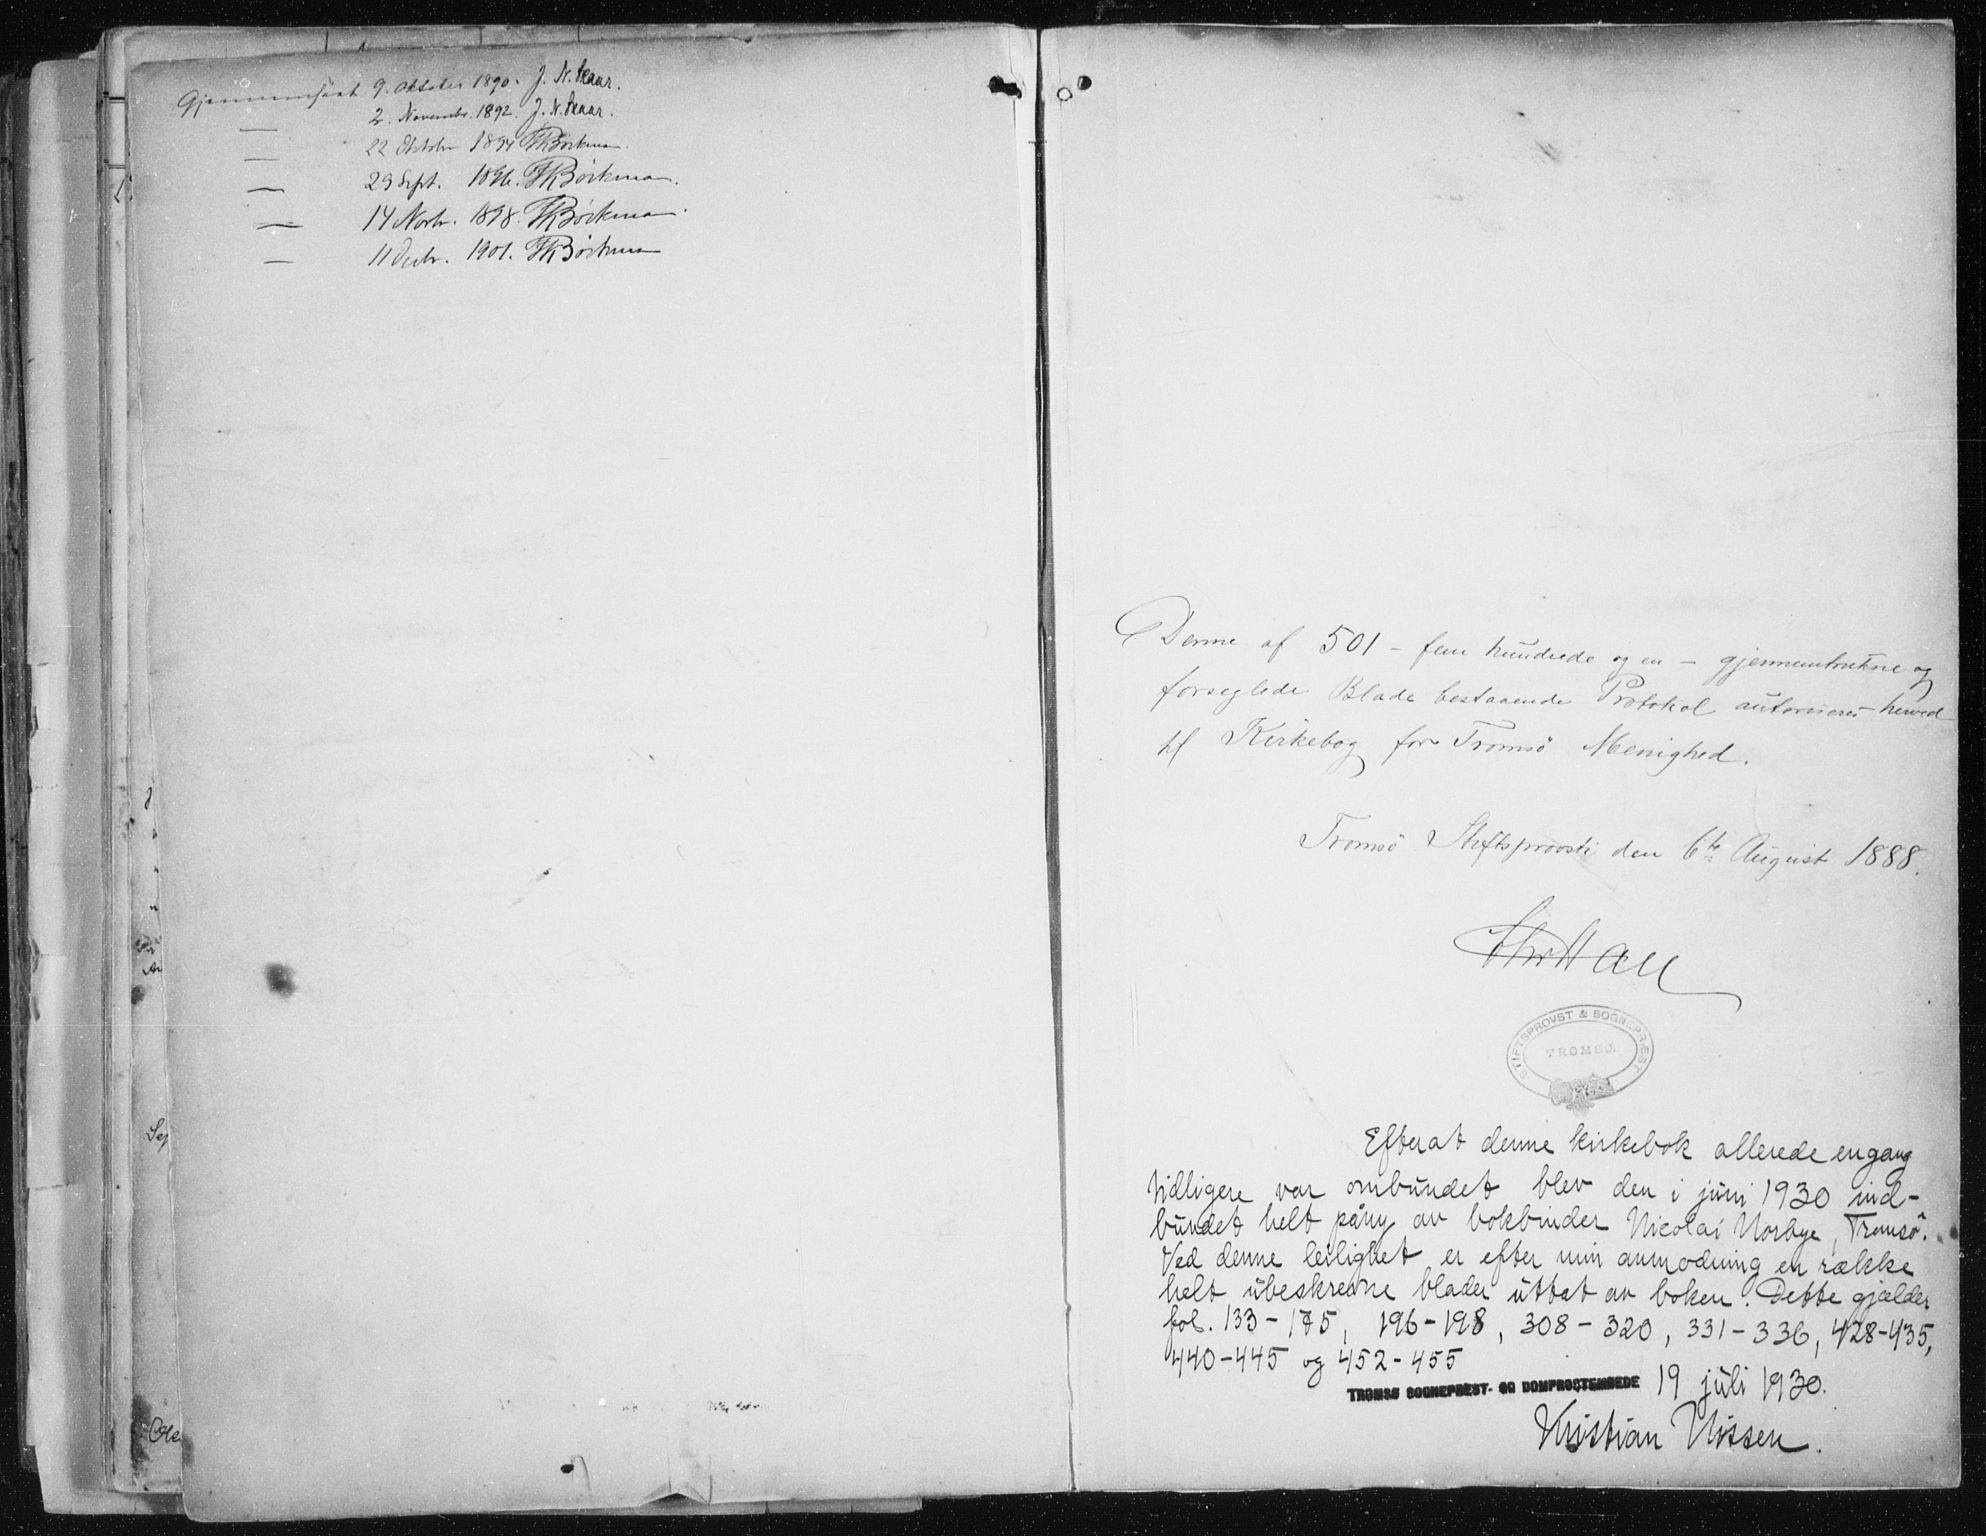 Gjennemseet 9. Oktober 1890. J. N. Skaar.
— 2. Novembr. 1892. J. N. Skaar.
— 22 Oktobr 1894 Bøckman.
— 29 Sept. 1896. Bøckman.
— 14 Novbr. 1898. Bøckman.
— 11 Decbr. 1901. Bøckman
Denne af 501 – fem hundrede og en – gjennemtrukne og
forseglede Blade bestaaende Protokol autoriseres herved
til Kirkebog for Tromsö Menighed.
Tromsö Stiftsprovsti den 6te August 1888.
STIFTSPROVST & SOGNEPRÆST
TROMSØ.
Efterat denne kirkebok allerede engang
tidligere var ombundet blev den i juni 1930 ind-
bundet helt påny av bokbinder Nicolai Norbye, Tromsø.
Ved denne leilighet er efter min anmodning en række
helt ubeskrevne blader uttat av boken. Dette gjælder
fol. 133 – 175, 196 – 198, 308 – 320, 331 – 336, 428 – 435,
440 – 445 og 452 – 455
TROMSØ SOGNEPREST- OG DOMPROSTEMBEDE 19 juli 1930.
Kristian Nissen.